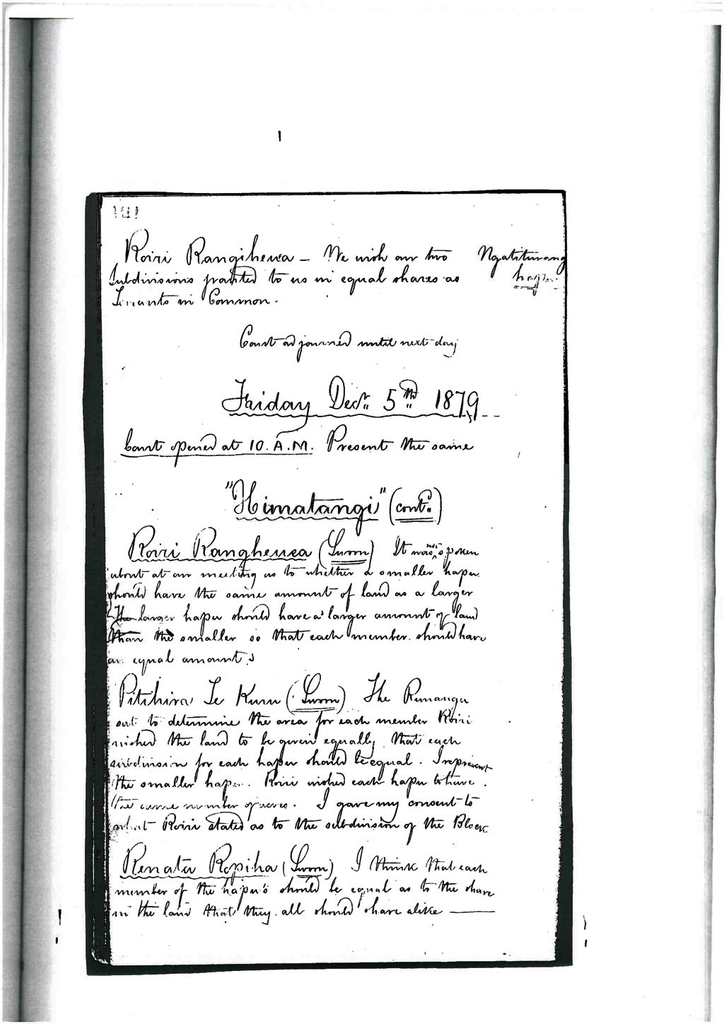 Roiri Rangiheuea – We wish our two
Subdivisions granted to us in equal shares as
Tenants in Common.
Ngatituranga
hapu
Court adjourned until next day
Friday Decr. 5th 1879
Court opened at 10. A.M. Present the same
"Himatangi" (contd.)
Roiri Rangheuea (Sworn) It was spoken
about at our meeting as to whether a smaller hapu
should have the same amount of land as a larger
The larger hapu should have a larger amount of land
than the smaller so that each member should have
an equal amount.
Pitihira Te Kuru (Sworn) The Runanga
sat to determine the area for each member Roiri
wished the land to be given equally that each
subdivision for each hapu should be equal. I represent
the smaller hapu. Roiri wished each hapu to have
the same number of acres. I gave my consent to
what Roiri stated as to the subdivision of the Block
Renata Ropiha (Sworn) I think that each
member of the hapu's should be equal as to the share
in the land that they all should share alike —